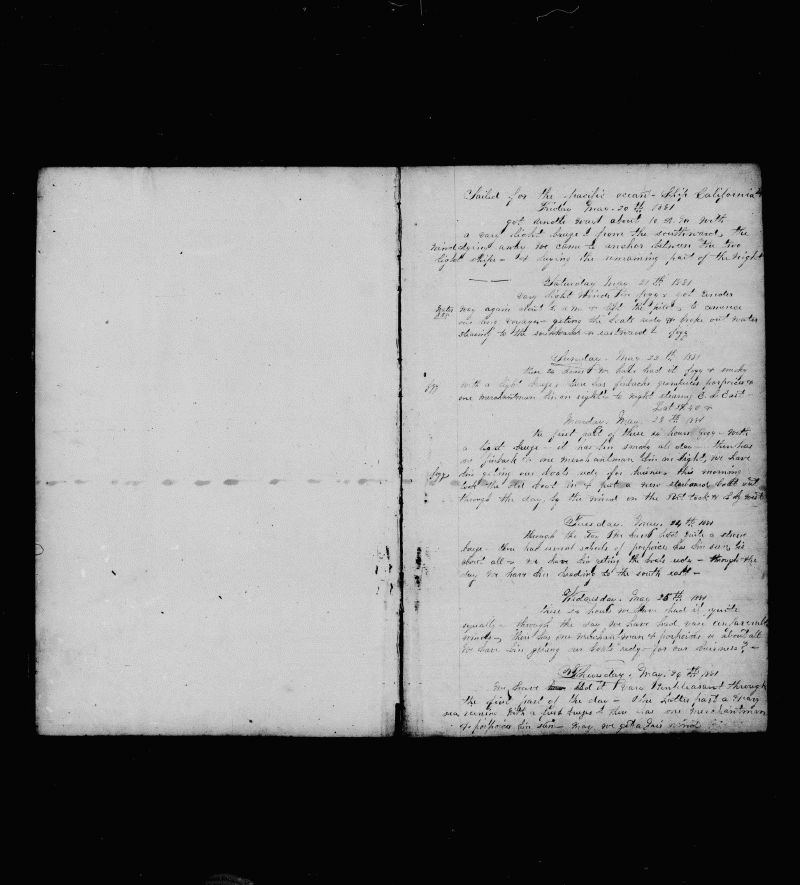 Sailed for the pacific ocean - Ship California
Friday May. 20th 1881
got under way about 10 A.M with
a vary light breeze from the southward, the
wind dying away we came to anchor between the two
light ships - & laying the remaining part of the night
Saturday May 21th 1881
vary light winds fogy got under
way again about & left the pilot, to comence
our long voyage - geting the boats redy & broke out water
stearing to the southward & eastward fogy
Sunday. May. 22th 1881
these 24 hours we have had it fogy & smoky
fogy
with a light breeze, thare has finbacks grampuses porpoices &
one merchantman bin in sight to night stearing E. S. East
Lat 40
Monday. May. 23th 1881
the first part of these 24 hours fogy - with
a light breeze - it has bin smoky all day - there has
one finback & one merchantman bin in sight, we have
fogy
bin geting our boats redy for buisness this morning
took the old boat in & put a new starboard boat out
through the day, by the wind on the Port tack
Tuesday. May. 24th 1881
through the day we have had quite a strong
breeze. thare has several schools of porpoices bin seen, tis
about all - we have bin geting the boats redy - through the
day we have bin heading to the south east -
Wednesday. May 25th 1881
these 24 hours we have had it quite
squally - through the day we have had vary unfavorable
winds, there has one merchantman & porpoices is about all
We have bin geting our boats redy - for our buisness -
Thursday. May. 26th 1881
we have had it vary unpleasant through
the first part of the day - the latter part a heavy
sea runing with a fresh breeze & there has one merchantman
& porpoices bin seen may we get a fair wind